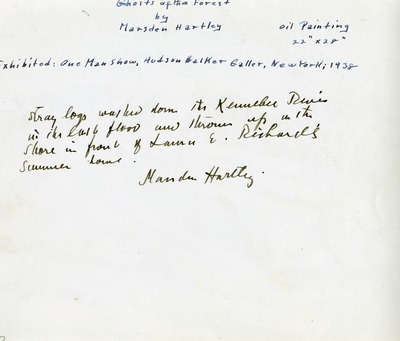 Ghosts of the Forest
by
Marsden Hartley
oil Painting
22" x 28"
Exhibited: One Man show, Hudson Walker Galler, New York, 1938
stray logs washed down the Kennebec River
in the last flood and thrown up on the
shore in front of Laura E. Richards
summer home.
Marsden Hartley.